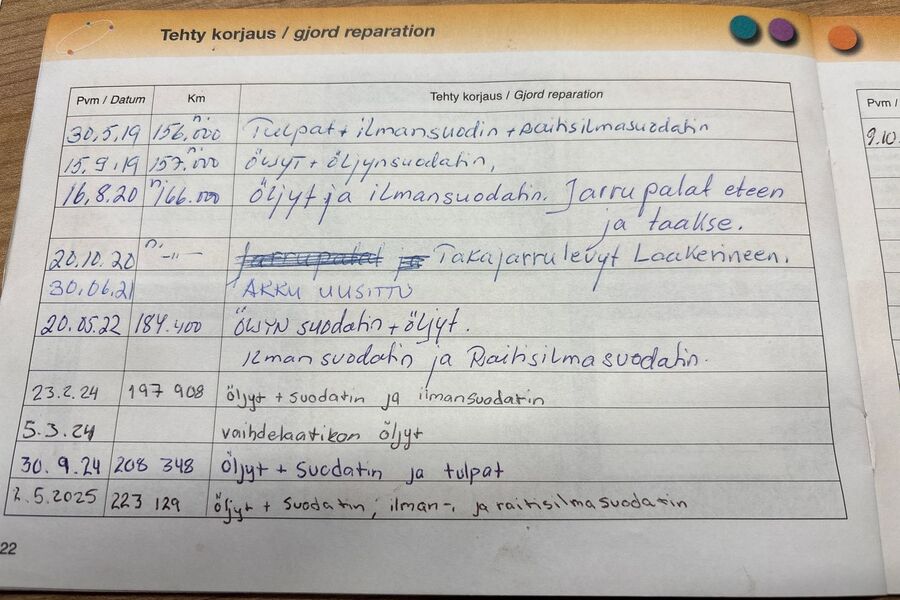 Tehty korjaus / gjord reparation
Pvm / Datum Km Tehty korjaus / Gjord reparation
30.5.19 n. 156.000 Tulpat + ilmansuodin + Raitisilmasuodatin
15.9.19 n. 157.000 ÖWYT + öljynsuodatin,
16.8.20 n. 166.000 öljyt ja ilmansuodatin. Jarrupalat eteen
ja taakse.
20.10.20 n. -"- Jarrupalat ja Takajarrulevyt Laakerineen.
30.06.21 AKKU UUSITTU
20.05.22 184.400 ÖWYN suodatin + öljyt.
ilman suodatin ja Raitisilmasuodatin.
23.2.24 197 908 öljyt + suodatin ja ilmansuodatin
5.3.24 vaihdelaatikon öljyt
30.9.24 208 348 öljyt + suodatin ja tulpat
2.5.2025 223 129 öljyt + suodatin, ilman-, ja raitisilmasuodatin
22
Pvm /
9.10.